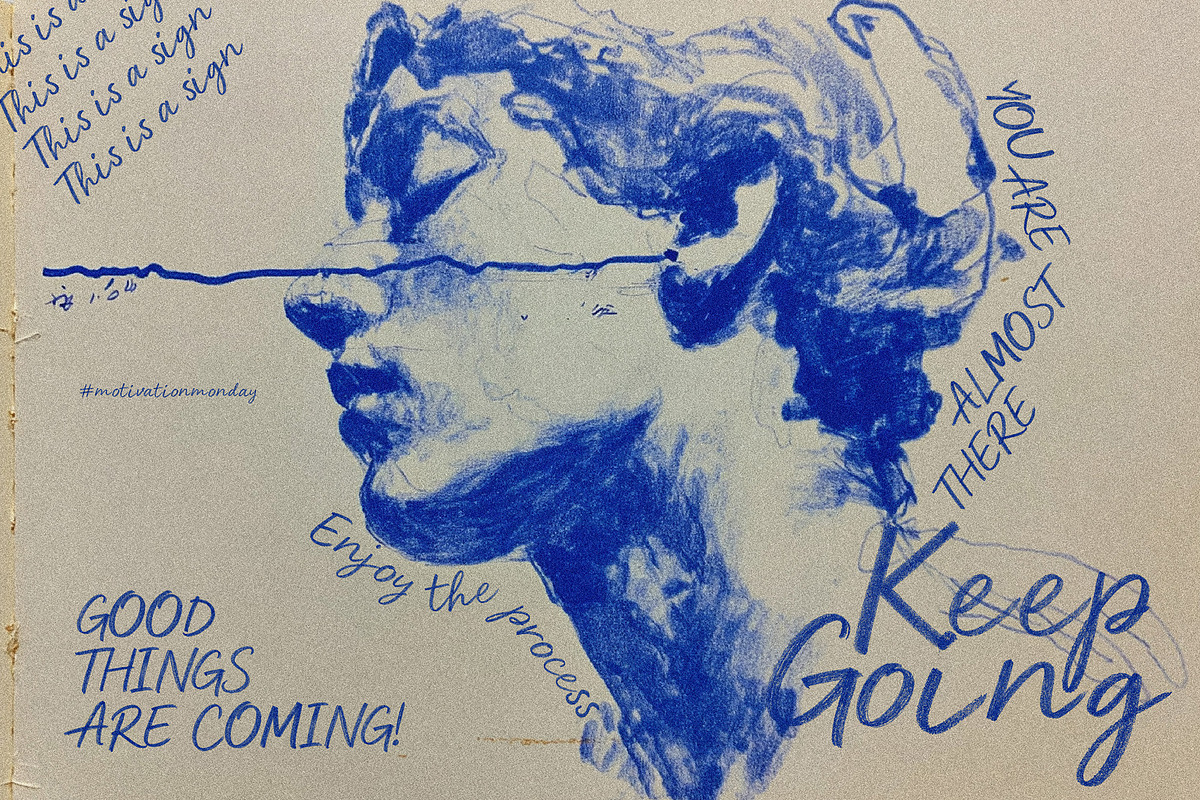 This is a sign
This is a sign
This is a sign
YOU ARE
ALMOST
THERE
#motivationmonday
Enjoy the process
Keep
Going
GOOD
THINGS
ARE COMING!